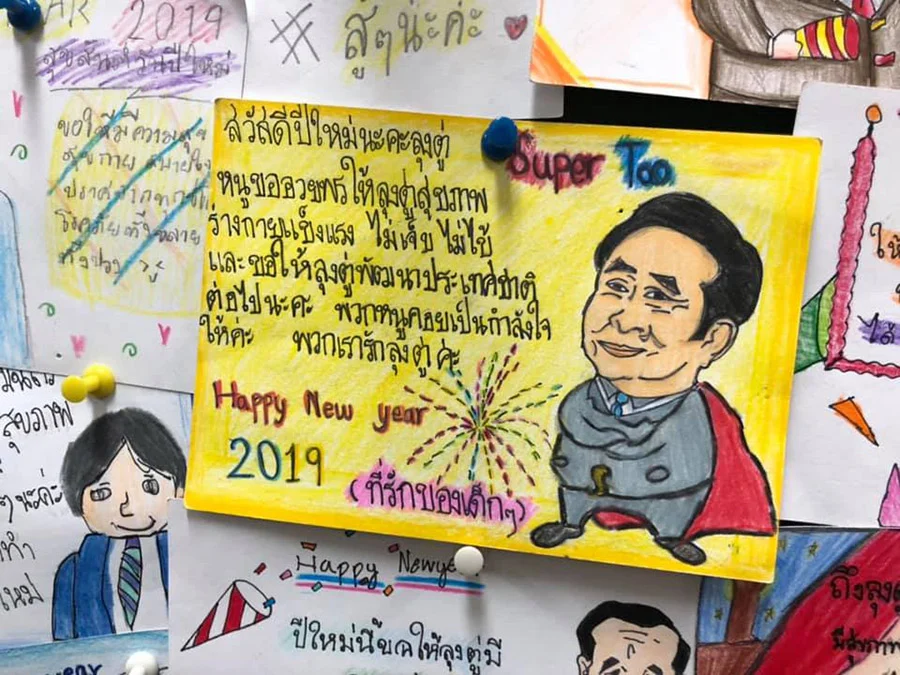 2019
สุขสันต์วันปีใหม่
ขอให้มีความสุข
สุขกาย สบายใจ
โรคภัยทั้งหลาย
ทั้งปวง
# สู้ๆนะค่ะ
สวัสดีปีใหม่นะคะลุงตู่
หนูขออวยพรให้ลุงตู่สุขภาพ
ร่างกายแข็งแรง ไม่เจ็บ ไม่ไข้
และขอให้ลุงตู่พัฒนาประเทศชาติ
ต่อไปนะคะ พวกหนูคอยเป็นกำลังใจ
ให้คะ พวกเรารักลุงตู่ ค่ะ
Super Too
Happy New year
2019
(ที่รักของเด็กๆ)
สุขภาพ
ๆนะค่ะ
ให้
ได้
Happy Newye
ปีใหม่นี้ขอให้ลุงตู่มี
ถึงลุงตู่
มีสุขภาพ